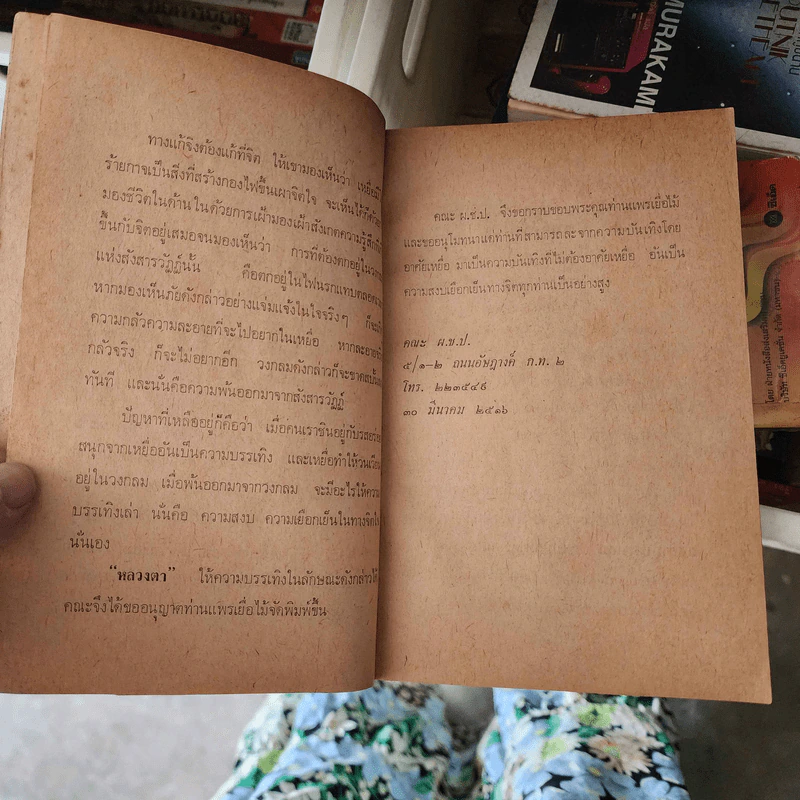 ทางแก้จึงต้องแก้ที่จิต ให้เขามองเห็นว่า เหยื่อมี
ร้ายกาจเป็นสิ่งที่สร้างกองไฟขึ้นเผาจิตใจ จะเห็นได้ก็ด้วย
มองชีวิตในด้านในด้วยการเฝ้ามองเฝ้าสังเกตความรู้สึกที่
ขึ้นกับจิตอยู่เสมอจนมองเห็นว่า การที่ต้องตกอยู่ในวงกลม
แห่งสังสารวัฏฏ์นั้น คือตกอยู่ในไฟนรกแทบตลอดเวลา
หากมองเห็นภัยดังกล่าวอย่างแจ่มแจ้งในใจจริงๆ ก็จะเกิด
ความกลัวความละอายที่จะไปอยากในเหยื่อ หากละอายจริง
กลัวจริง ก็จะไม่อยากอีก วงกลมดังกล่าวก็จะขาดสะบั้นลง
ทันที และนั่นคือความพ้นออกมาจากสังสารวัฏฏ์
ปัญหาที่เหลืออยู่ก็คือว่า เมื่อคนเราชินอยู่กับรสอร่อย
สนุกจากเหยื่ออันเป็นความบรรเทิง และเหยื่อทำให้วนเวียน
อยู่ในวงกลม เมื่อพ้นออกมาจากวงกลม จะมีอะไรให้ความ
บรรเทิงเล่า นั่นคือ ความสงบ ความเยือกเย็นในทางจิตใจ
นั่นเอง
“หลวงตา” ให้ความบรรเทิงในลักษณะดังกล่าวได้
คณะจึงได้ขออนุญาตท่านแพรเยื่อไม้จัดพิมพ์ขึ้น
คณะ ผ.ช.ป. จึงขอกราบขอบพระคุณท่านแพรเยื่อไม้
และขออนุโมทนาแด่ท่านที่สามารถละจากความบันเทิงโดย
อาศัยเหยื่อ มาเป็นความบันเทิงที่ไม่ต้องอาศัยเหยื่อ อันเป็น
ความสงบเยือกเย็นทางจิตทุกท่านเป็นอย่างสูง
คณะ ผ.ช.ป.
๕/๑-๒ ถนนอัษฎางค์ ก.ท. ๒
โทร. ๒๒๓๕๔๙
๓๐ มีนาคม ๒๕๑๖
MURAKAMI
ซีเอ็ด